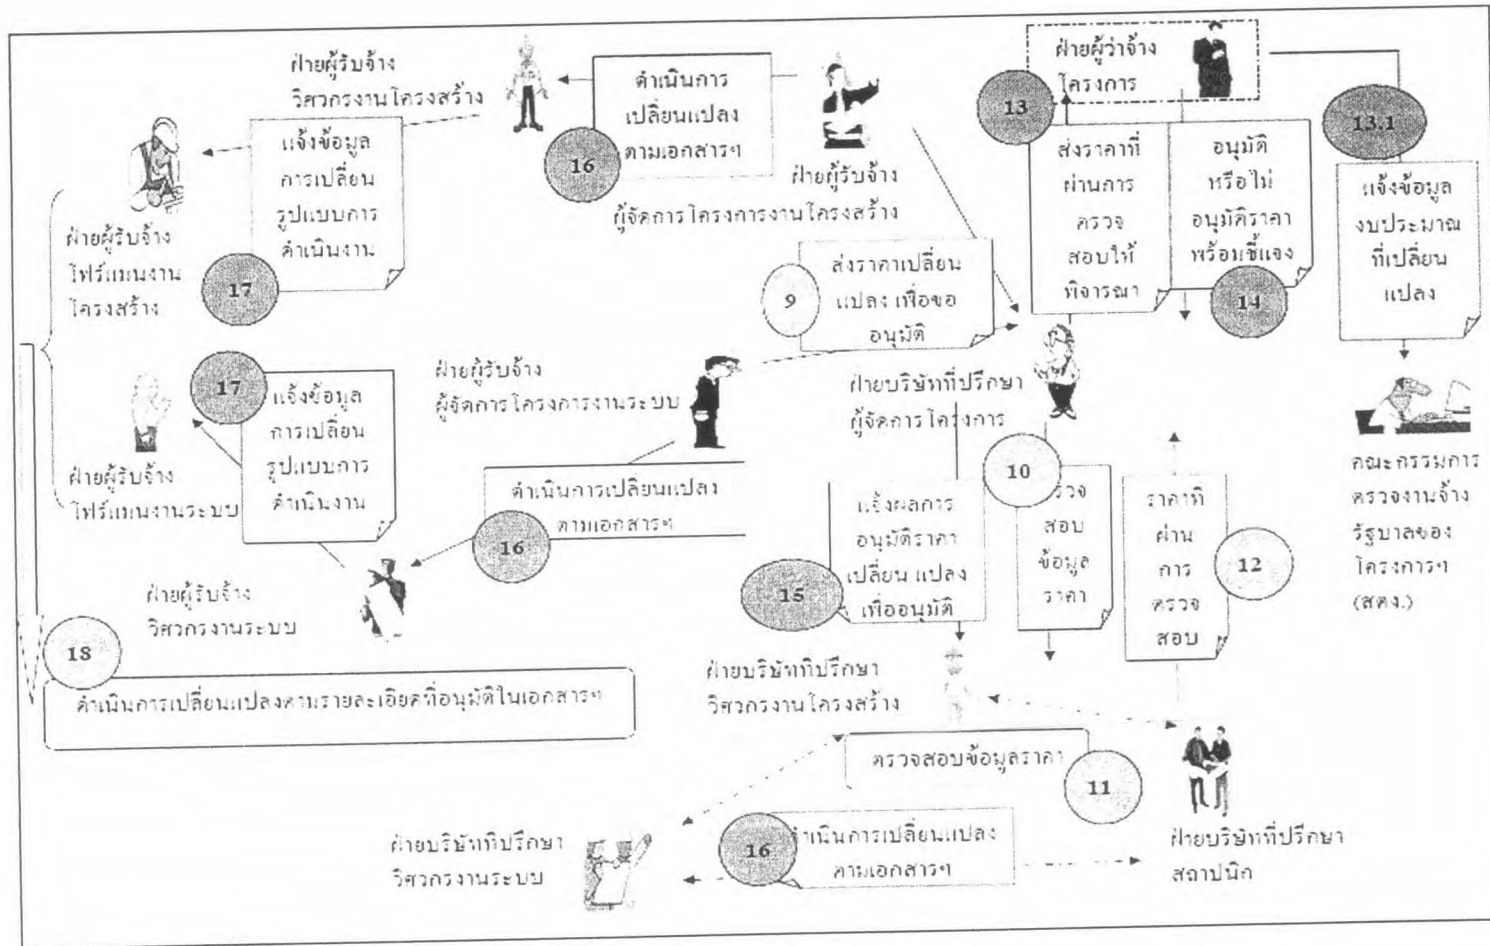 ฝ่ายผู้รับจ้าง
วิศวกรงานโครงสร้าง
ดำเนินการ
เปลี่ยนแปลง
ตามเอกสารฯ
16
ฝ่ายผู้รับจ้าง
ผู้จัดการโครงการงานโครงสร้าง
ฝ่ายผู้ว่าจ้าง
โครงการ
13
ส่งราคาที่
ผ่านการ
ตรวจ
สอบให้
พิจารณา
อนุมัติ
หรือไม่
อนุมัติราคา
พร้อมชี้แจง
14
13.1
แจ้งข้อมูล
งบประมาณ
ที่เปลี่ยน
แปลง
แจ้งข้อมูล
การเปลี่ยน
รูปแบบการ
ดำเนินงาน
17
ฝ่ายผู้รับจ้าง
โฟร์แมนงาน
โครงสร้าง
ส่งราคาเปลี่ยน
แปลง เพื่อขอ
อนุมัติ
9
17
แจ้งข้อมูล
การเปลี่ยน
รูปแบบการ
ดำเนินงาน
ฝ่ายผู้รับจ้าง
ผู้จัดการโครงการงานระบบ
ฝ่ายบริษัทที่ปรึกษา
ผู้จัดการโครงการ
ฝ่ายผู้รับจ้าง
โฟร์แมนงานระบบ
ดำเนินการเปลี่ยนแปลง
ตามเอกสารฯ
16
10
ตรวจ
สอบ
ข้อมูล
ราคา
แจ้งผลการ
อนุมัติราคา
เปลี่ยน แปลง
เพื่ออนุมัติ
15
ราคาที่
ผ่าน
การ
ตรวจ
สอบ
12
คณะกรรมการ
ตรวจงานจ้าง
รัฐบาลของ
โครงการฯ
(สตง.)
ฝ่ายผู้รับจ้าง
วิศวกรงานระบบ
18
ดำเนินการเปลี่ยนแปลงตามรายละเอียดที่อนุมัติในเอกสารฯ
ฝ่ายบริษัทที่ปรึกษา
วิศวกรงานโครงสร้าง
ตรวจสอบข้อมูลราคา
11
ฝ่ายบริษัทที่ปรึกษา
วิศวกรงานระบบ
16
ดำเนินการเปลี่ยนแปลง
ตามเอกสารฯ
ฝ่ายบริษัทที่ปรึกษา
สถาปนิก